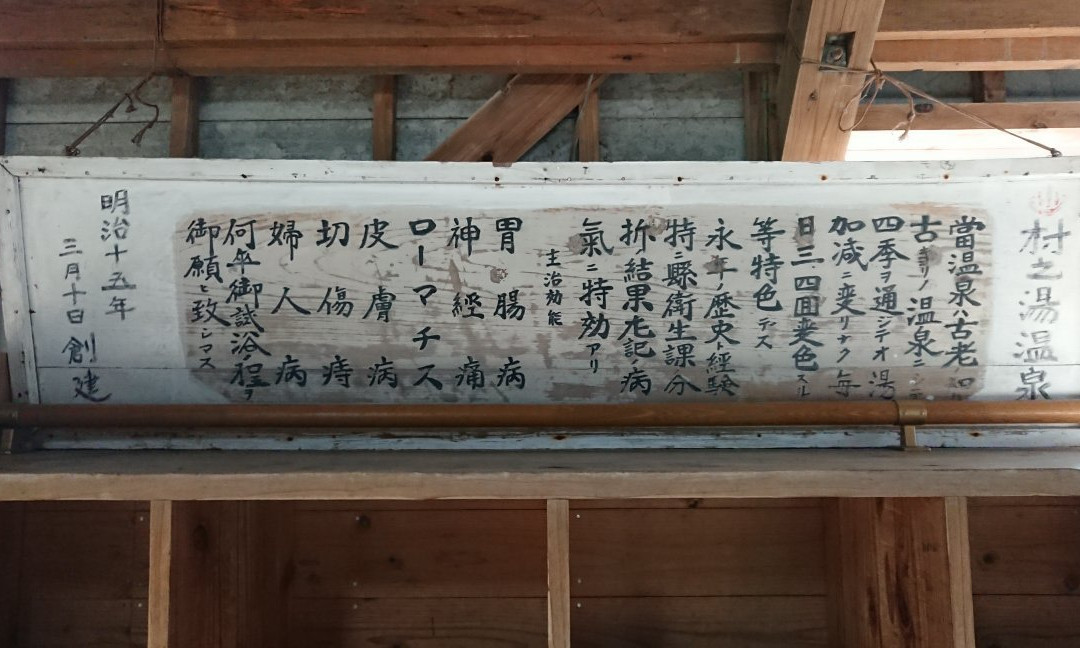 ♨村之湯温泉
當温泉ハ古老ロリ
古ヨリノ温泉ニシテ
四季ヲ通ジテオ湯
加減ニ変リナク毎
日三、四回変色スル
等特色デス
永年ノ歴史ト経験
特ニ縣衛生課分
折結果左記病
氣ニ特効アリ
主治効能
胃腸病
神経痛
ローマチス
皮膚病
切傷痔
婦人病
何卒御試浴程ヲ
御願ヒ致シマス
明治十五年
三月十日創建